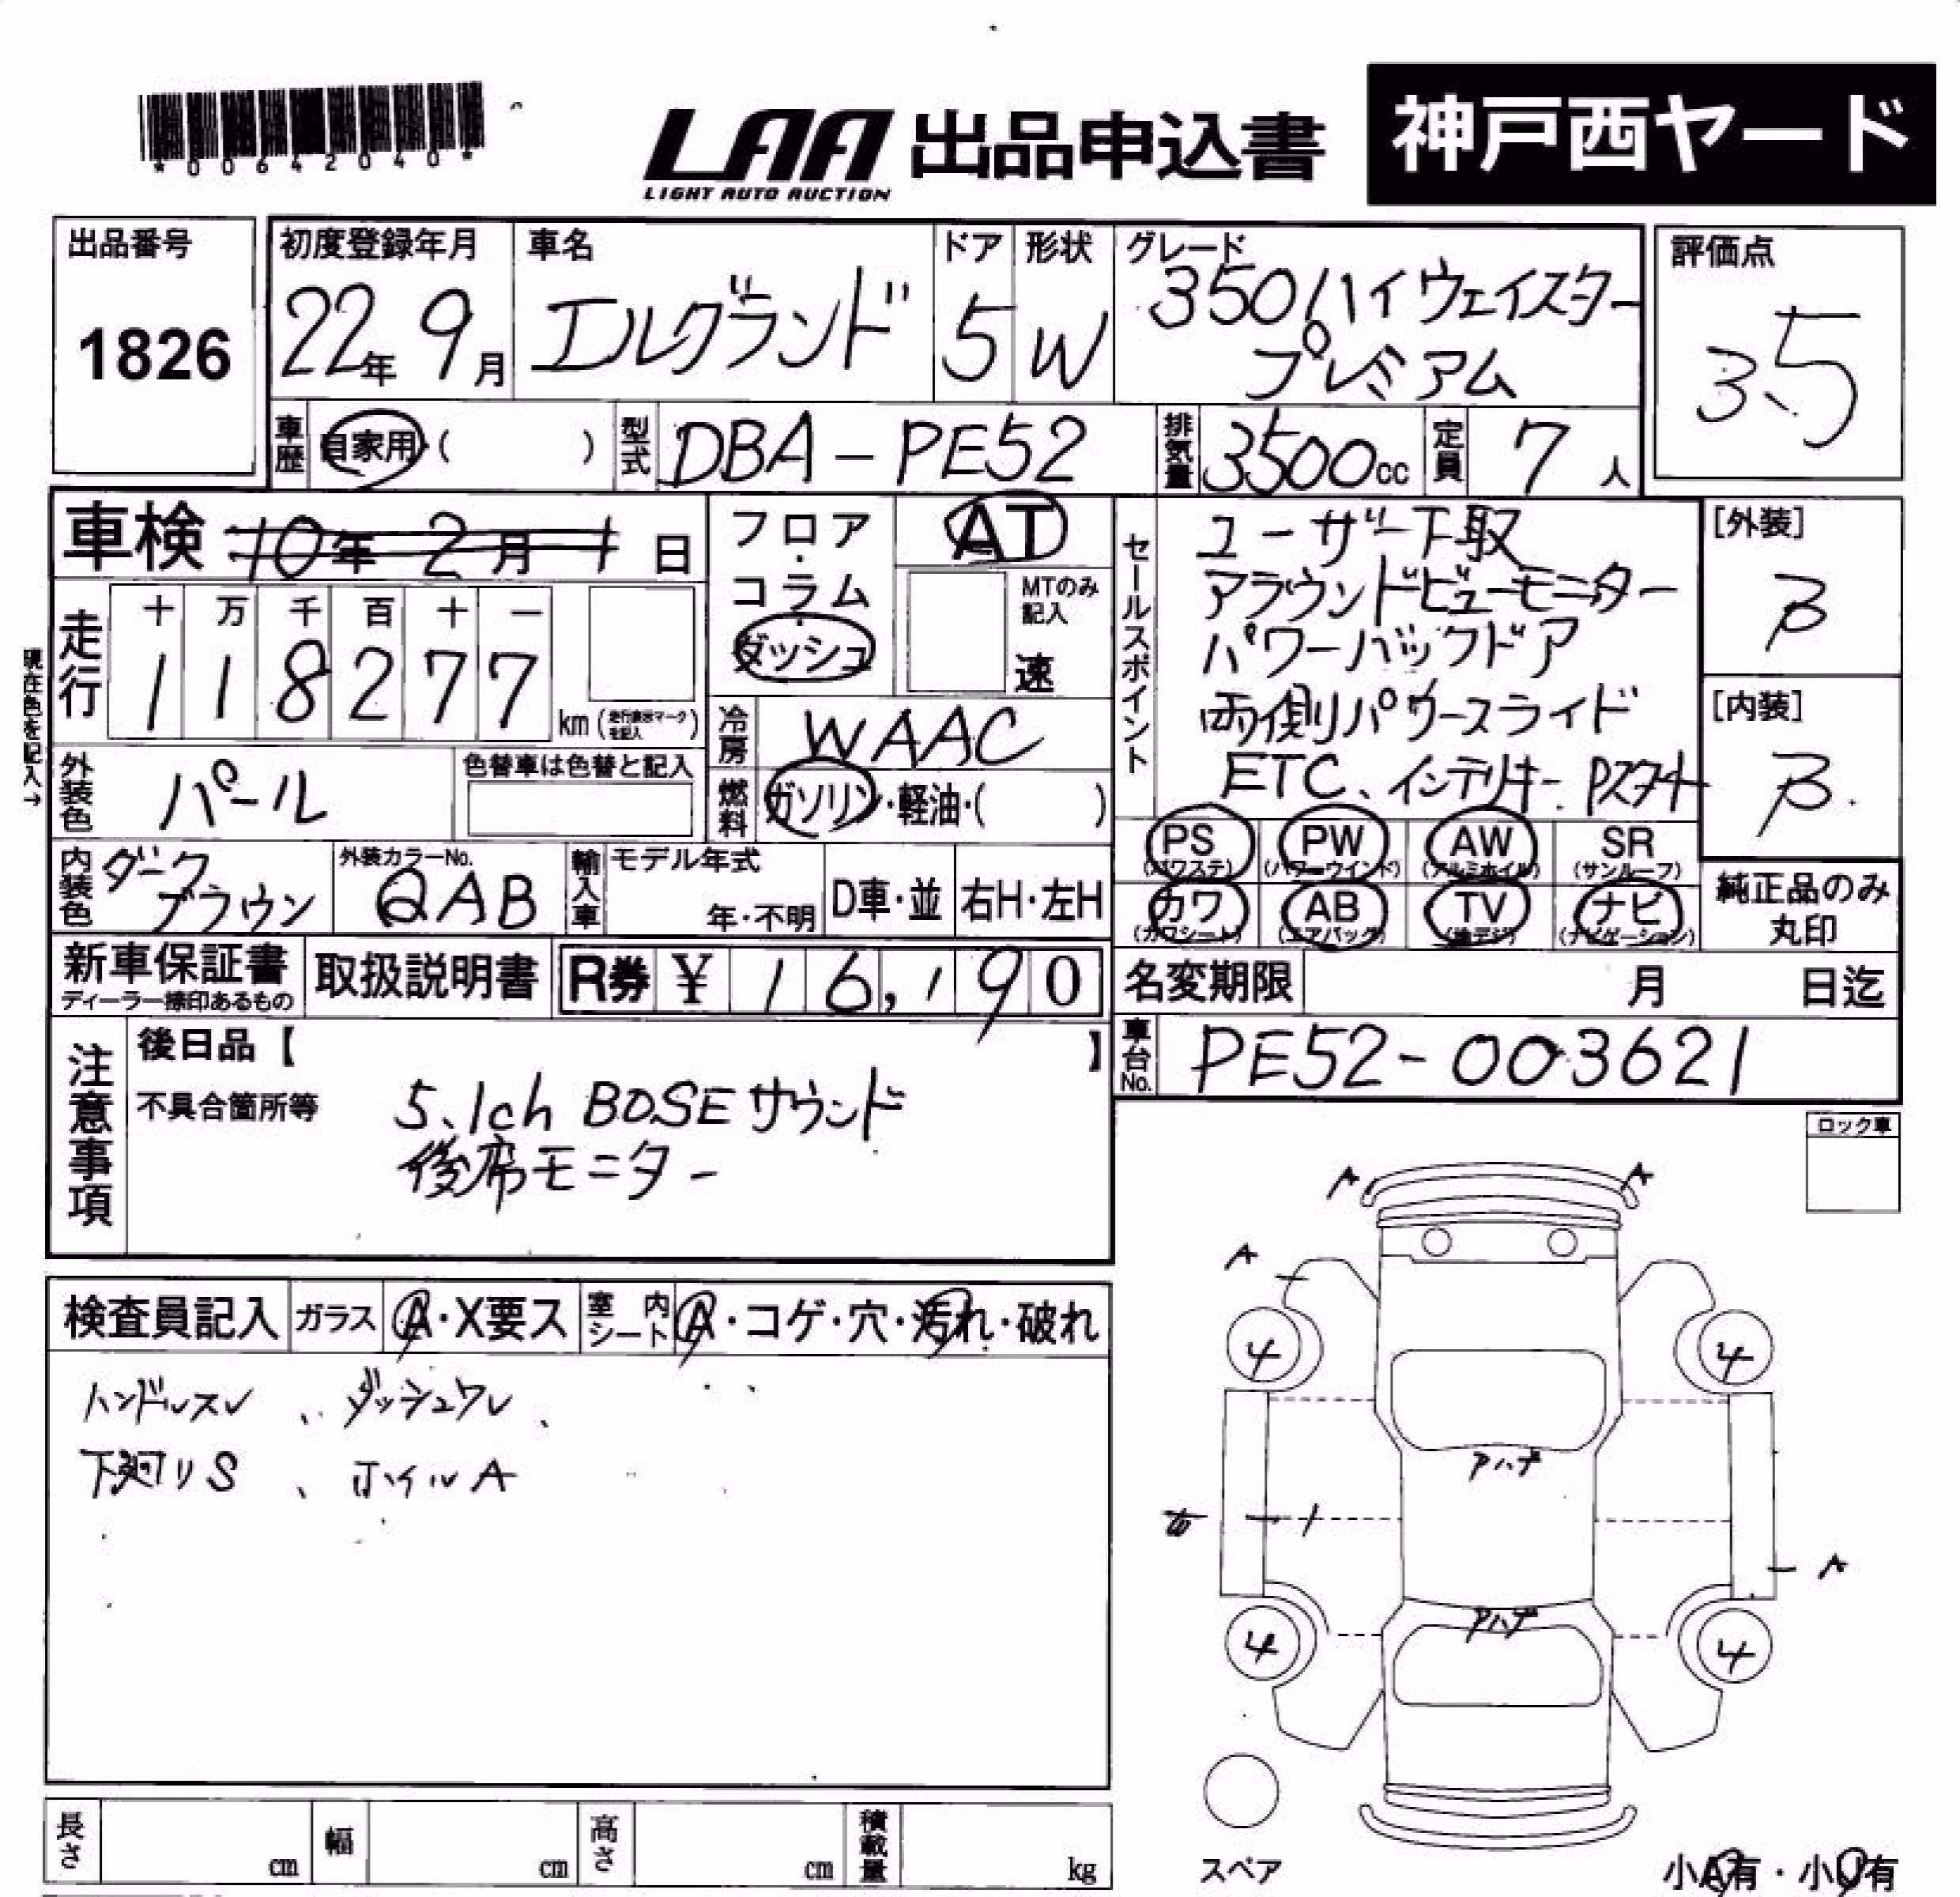 *00642040*
LAA 出品申込書 神戸西ヤード
LIGHT AUTO AUCTION
出品番号 初度登録年月 車名 ドア 形状 グレード 評価点
1826 22年 9月 エルグランド 5 W 350ハイウェイスター 3.5
プレミアム
車歴 自家用・( ) 型式 DBA-PE52 排気量 3500cc 定員 7人
車検 10年 2月 1日
フロア・コラム・ダッシュ
AT
MTのみ記入
速
セールスポイント
ユーザー下取
アラウンドビューモニター
パワーバックドア
両側パワースライド
ETC、インテリキー、Pスタート
[外装]
B
[内装]
B
現在色を記入→
走行 十 万 千 百 十 一
1 1 8 2 7 7 km (走行表示マークを記入)
冷房 WAAC
燃料 ガソリン・軽油・( )
外装色 パール 色替車は色替と記入
内装色 ダークブラウン 外装カラーNo. QAB 輸入車 モデル年式 年・不明 D車・並 右H・左H
PS (パワステ) PW (パワーウインド) AW (アルミホイル) SR (サンルーフ)
カワ (カワシート) AB (エアバッグ) TV (地デジ) ナビ (ナビゲーション)
純正品のみ丸印
新車保証書 ディーラー捺印あるもの 取扱説明書 R券 ¥ 16,190
名変期限 月 日迄
車台No. PE52-003621
注意事項
後日品【 】
不具合箇所等 5.1ch BOSEサウンド
後席モニター
ロック車
検査員記入 ガラス A・X要ス 室内シート A・コゲ・穴・汚れ・破れ
ハンドルスレ、ダッシュワレ、
下廻りS、ホイルA
A A
A
4 4
アハゲ
A
アハゲ
4 4
長さ cm 幅 cm 高さ cm 積載量 kg
スペア
小A有・小U有